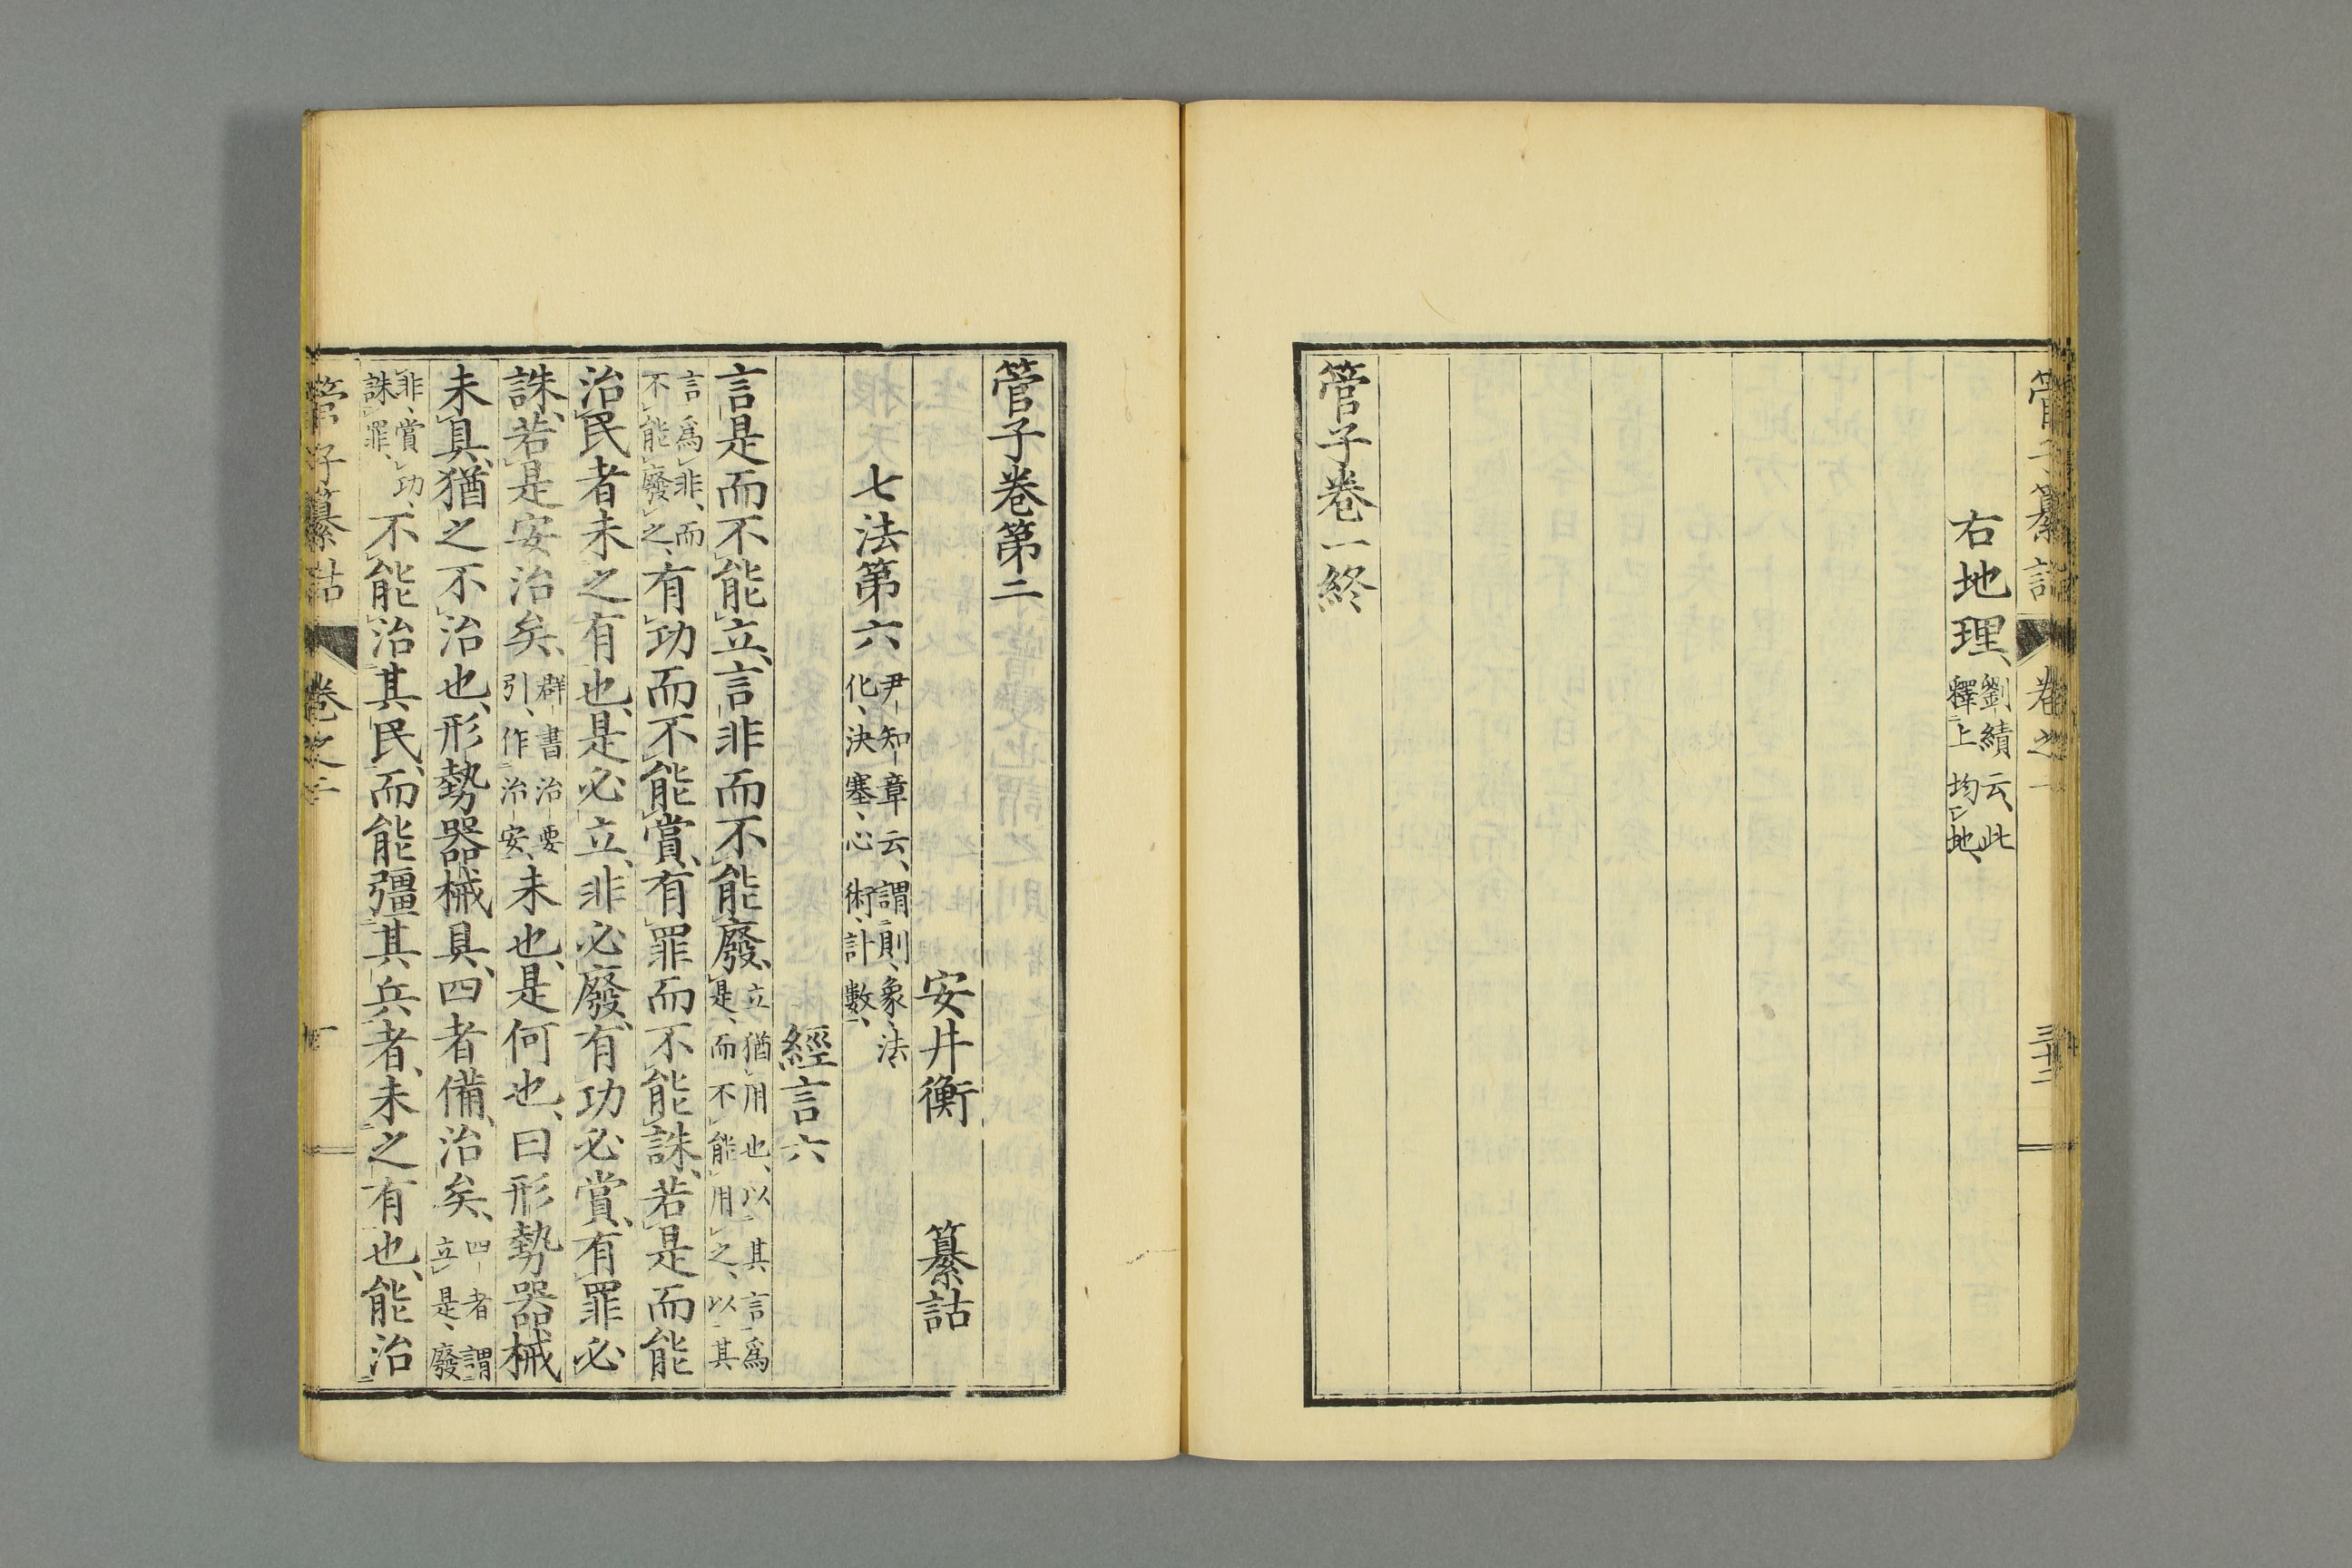 管子纂詁 卷之一 三十二
右地理、劉績云、此釋上均地、
管子卷一終
管子卷第二
安井衡 纂詁
七法第六 尹知章云、謂則、象、法、化、決塞、心術、計數、
經言六
言是而不能立、言非而不能廢、立猶用也、以其言爲是、而不能用之、以其
言爲非、而不能廢之、有功而不能賞、有罪而不能誅、若是而能
治民者、未之有也、是必立、非必廢、有功必賞、有罪必
誅、若是安治矣、群書治要引、作治安、未也、是何也、曰形勢器械
未具、猶之不治也、形勢器械具、四者備、治矣、四者謂立是、廢
非、賞功、誅罪、不能治其民、而能彊其兵者、未之有也、能治
管子纂詁 卷之二 一